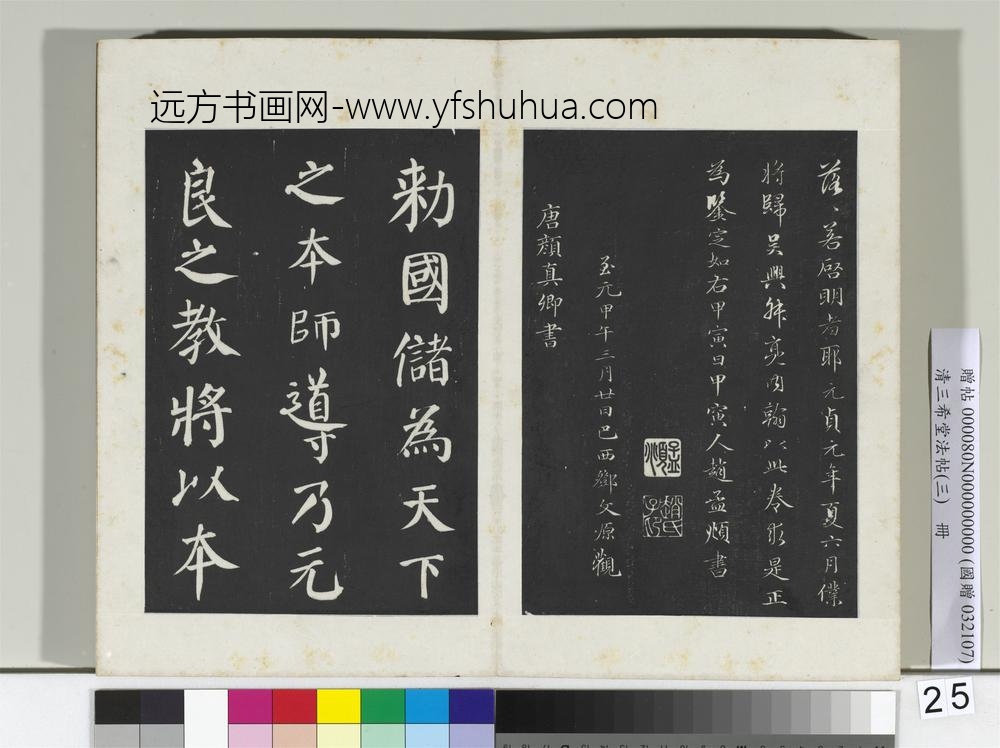 远方书画网-www.yfshuhua.com
落〻若啓明者耶元貞元年夏六月僕
將歸吴興舜亮内翰以此卷求是正
為鑒定如右甲寅日甲寅人趙孟頫書
至元甲午三月廿日巴西鄧文源觀
唐顏真卿書
勑國儲為天下
之本師導乃元
良之教將以本
贈帖 0000080N000000000 (國贈 032107)
清三希堂法帖(三) 冊
25